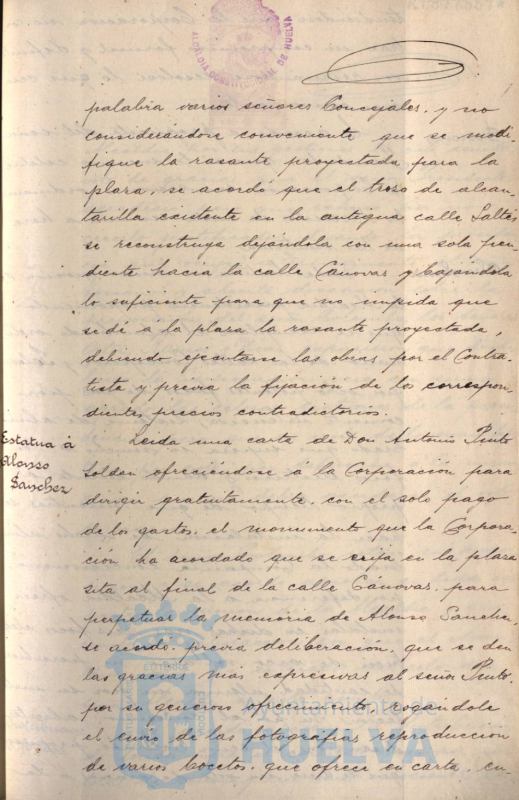 palabra varios señores Concejales, y no
considerándose conveniente que se modi-
fique la rasante proyectada para la
plaza, se acordó que el trozo de alcan-
tarilla existente en la antigua calle Saltés
se reconstruya dejándola con una sola pen-
diente hacia la calle Cánovas y bajándola
lo suficiente para que no impida que
se dé á la plaza la rasante proyectada,
debiendo ejecutarse las obras por el Contra-
tista y prévia la fijación de los correspon-
dientes precios contradictorios.
Estatua á
Alonso
Sanchez
Leida una carta de Don Antonio Pinto
Soldan ofreciéndose á la Corporación para
dirigir gratuitamente, con el solo pago
de los gastos, el monumento que la Corpora-
ción ha acordado que se erija en la plaza
sita al final de la calle Cánovas, para
perpetuar la memoria de Alonso Sanchez,
se acordó, prévia deliberación, que se den
las gracias más expresivas al señor Pinto,
por su generoso ofrecimiento, rogándole
el envio de las fotografías reproducción
de varios bocetos, que ofrece en carta, en-
Ayuntamiento de
HUELVA